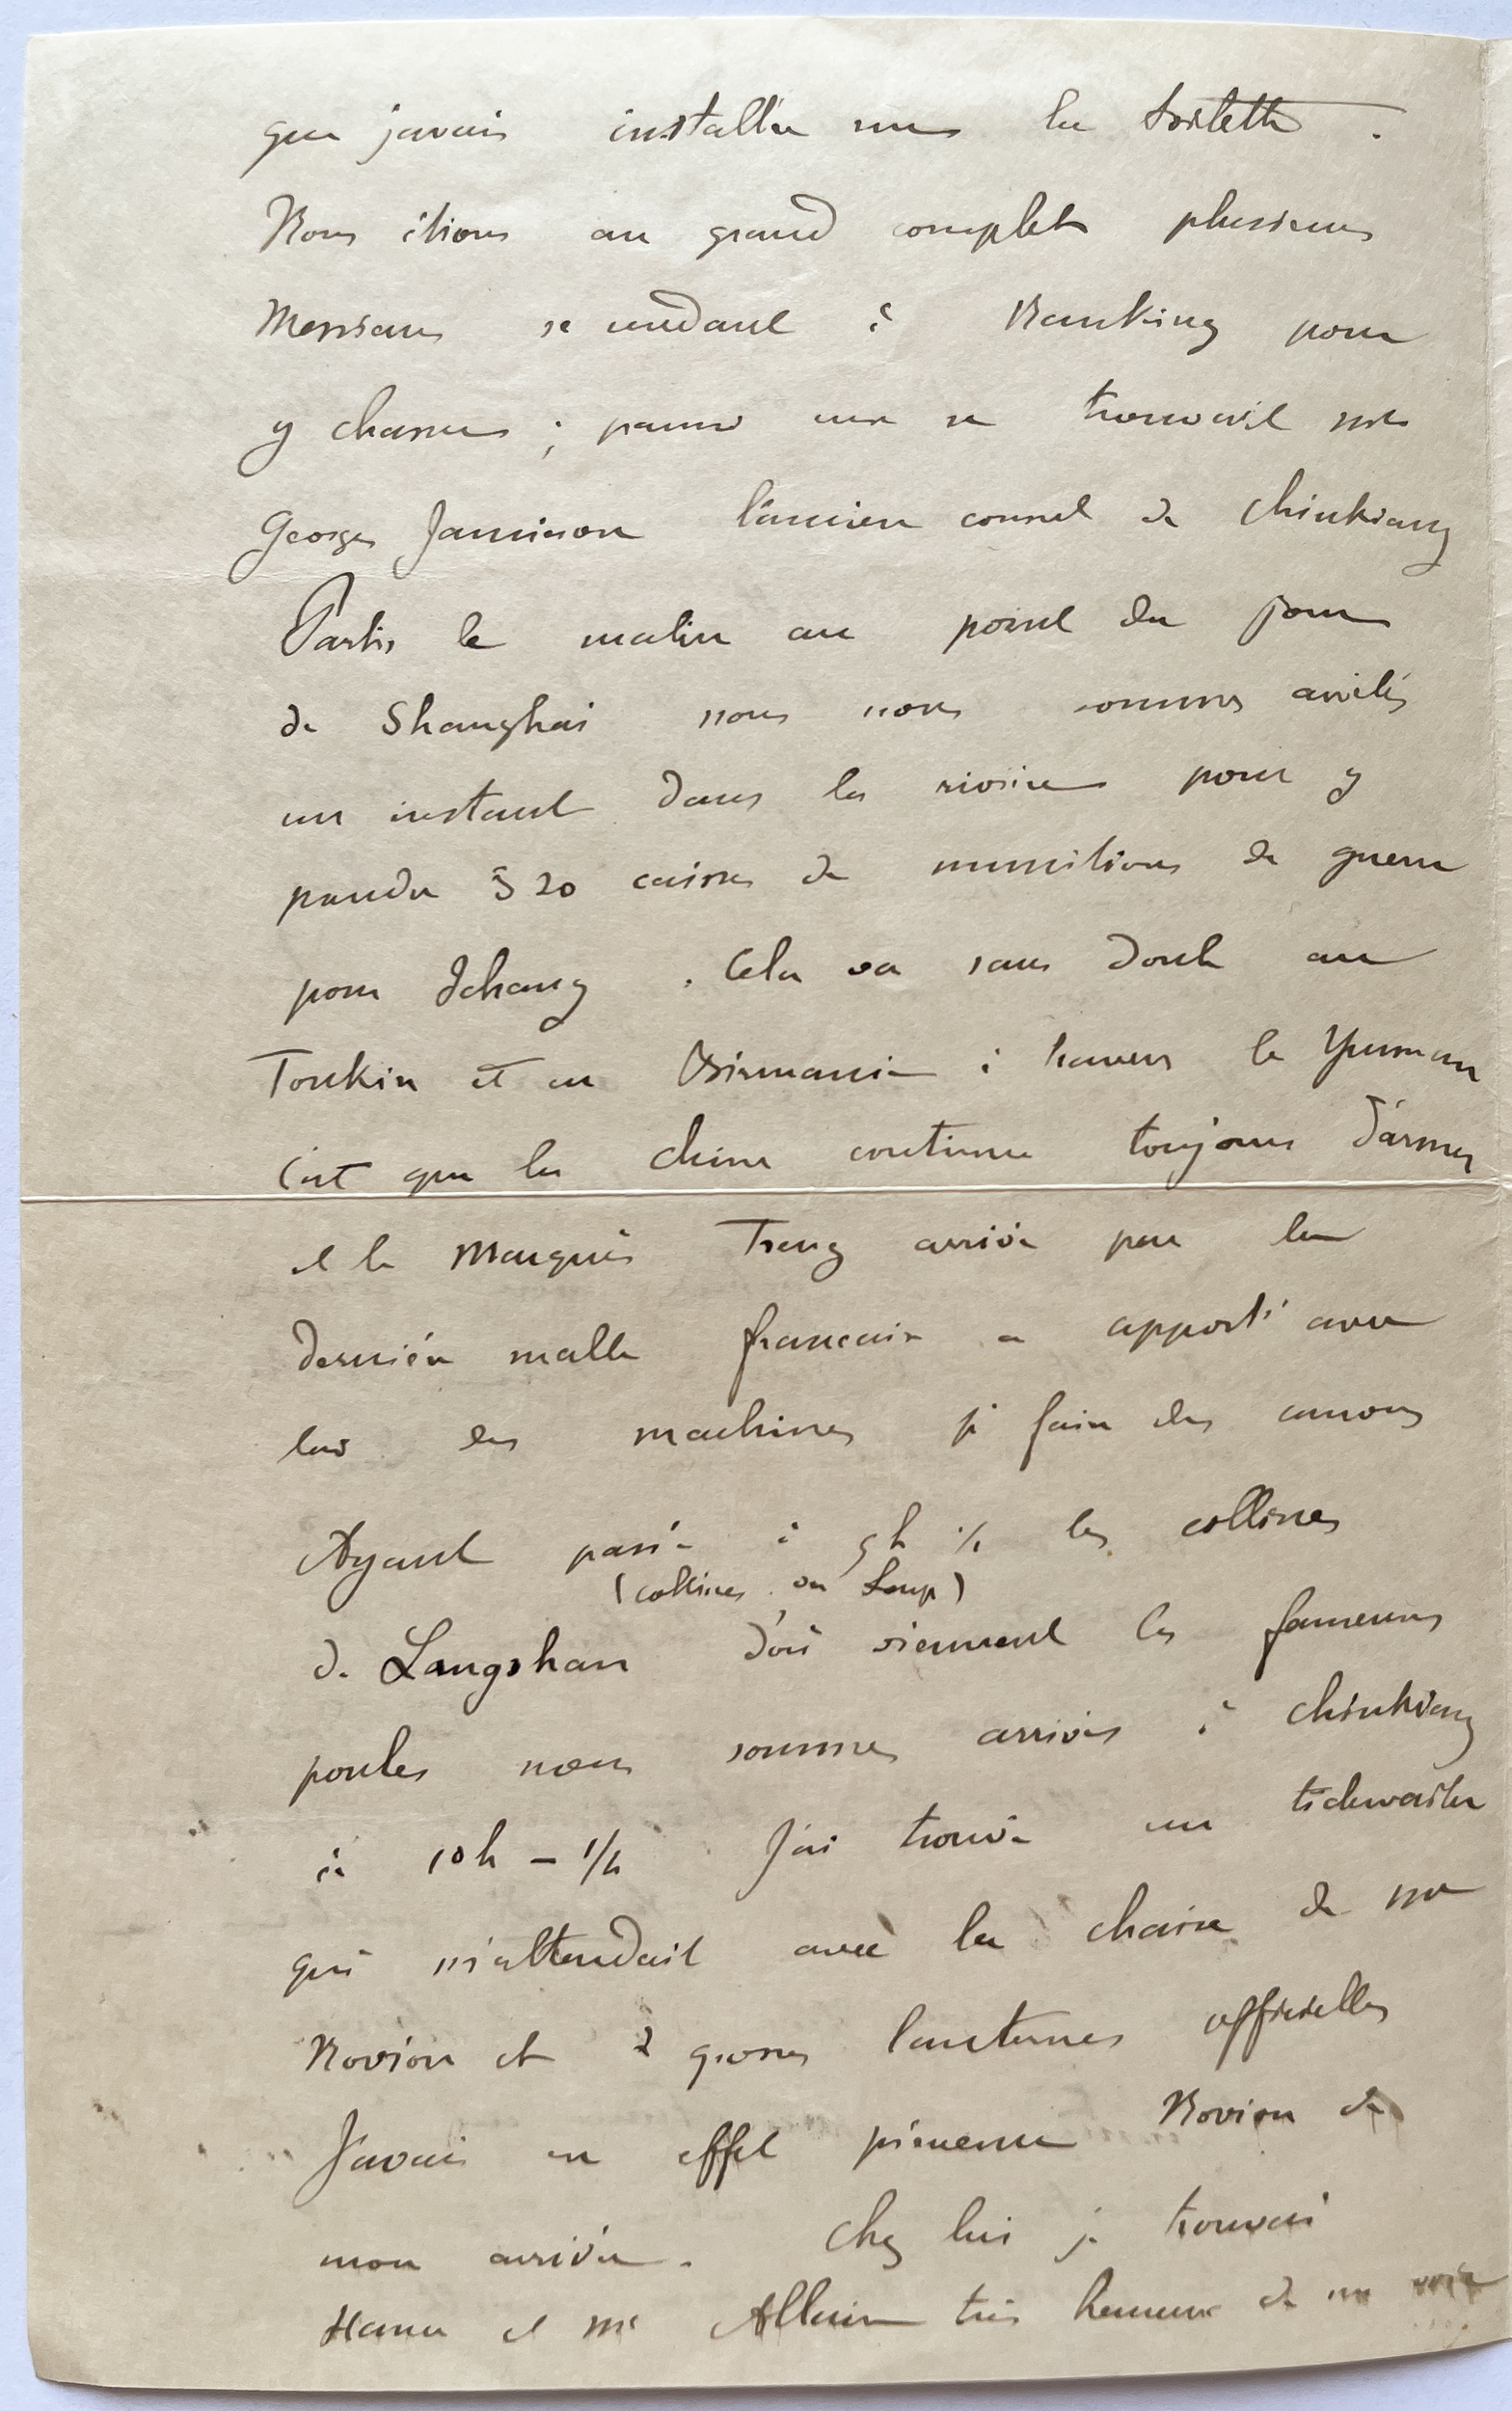 que j'avais installée sur la toilette .
Nous étions au grand complet plusieurs
Messieurs se rendant à Nanking pour
y chasser ; parmi eux se trouvait
George Jamieson l'ancien consul de Chinkiang
Partis le matin au point du jour
de Shanghai nous nous sommes arrêtés
un instant dans la rivière pour y
prendre 520 caisses de munitions de guerre
pour Ichang . Cela va sans doute au
Tonkin et en Birmanie à travers le Yunnan
C'est que la Chine continue toujours d'armer
et le Marquis Tseng arrivé par la
dernière malle française a apporté avec
lui des machines à faire des canons
Ayant passé à 5h ½ les collines
(collines du Loup)
de Langshan d'où viennent les fameuses
poules nous sommes arrivés à Chinkiang
à 10h - 1/2 J'ai trouvé un tidewaiter
qui m'attendait avec la chaise de Mr
Novion et 2 grosses lanternes officielles
J'avais en effet prévenu Novion de
mon arrivée . Chez lui je trouvai
et Mr très heureux de me voir